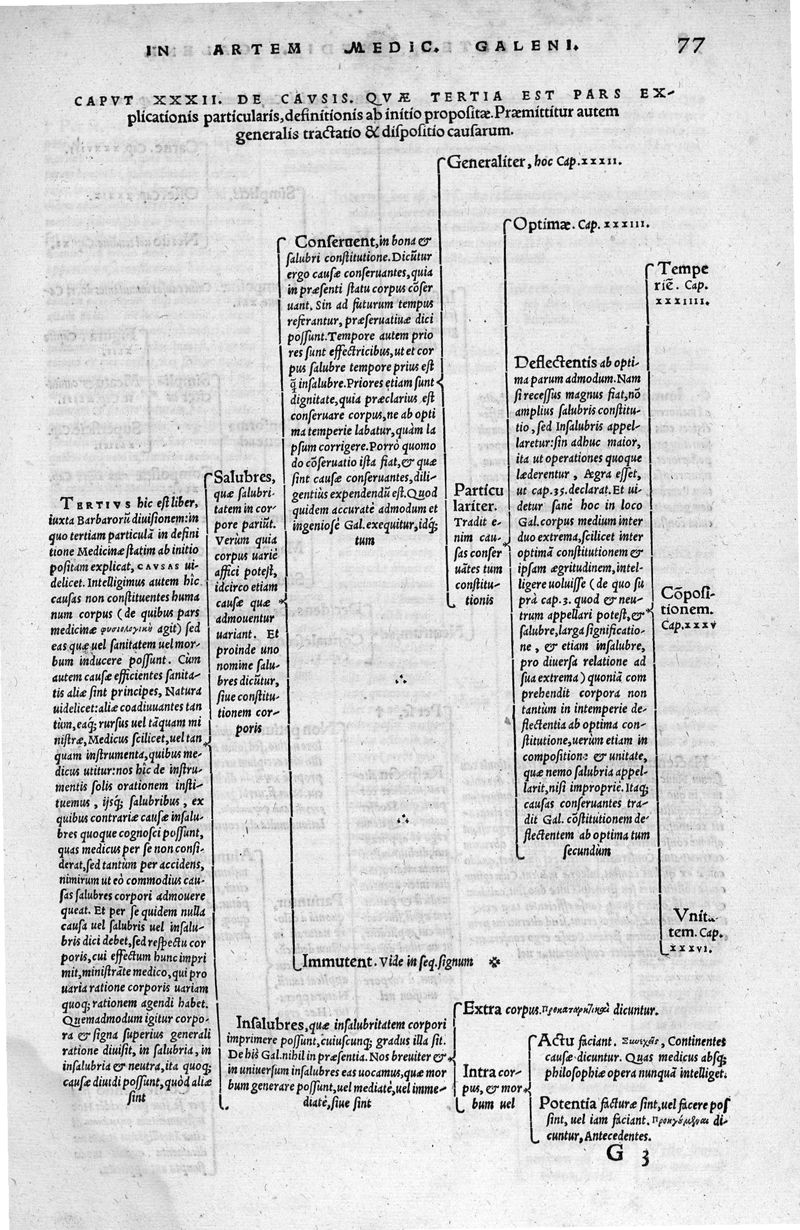 IN ARTEM MEDIC. GALENI. 77
CAPVT XXXII. DE CAVSIS. QVÆ TERTIA EST PARS EX-
plicationis particularis, definitionis ab initio propositæ. Præmittitur autem
generalis tractatio & dispositio causarum.
TERTIVS hic est liber,
iuxta Barbarorū diuisionem: in
quo tertiam particulā in defini
tione Medicinæ statim ab initio
positam explicat, CAVSAS ui-
delicet. Intelligimus autem hîc
causas non constituentes huma
num corpus (de quibus pars
medicinæ φυσιολογικὴ agit) sed
eas quæ uel sanitatem uel mor-
bum inducere possunt. Cùm
autem causæ efficientes sanita-
tis aliæ sint principes, Natura
uidelicet: aliæ coadiuuantes tan
tùm, eaq; rursus uel tāquam mi
nistræ, Medicus scilicet, uel tan
quam instrumenta, quibus me-
dicus utitur: nos hîc de instru-
mentis solis orationem insti-
tuemus, ijsq; salubribus, ex
quibus contrariæ causæ insalu-
bres quoque cognosci possunt,
quas medicus per se non consi-
derat, sed tantùm per accidens,
nimirum ut eò commodius cau-
sas salubres corpori admouere
queat. Et per se quidem nulla
causa uel salubris uel insalu-
bris dici debet, sed respectu cor
poris, cui effectum hunc impri
mit, ministrāte medico, qui pro
uaria ratione corporis uariam
quoq; rationem agendi habet.
Quemadmodum igitur corpo-
ra & signa superius generali
ratione diuisit, in salubria, in
insalubria & neutra, ita quoq;
causæ diuidi possunt, quòd aliæ
sint
Salubres,
quæ salubri-
tatem in cor-
pore pariūt.
Verùm quia
corpus uariè
affici potest,
idcirco etiam
causæ quæ
admouentur
uariant. Et
proinde uno
nomine salu-
bres dicūtur,
siue constitu-
tionem cor-
poris
Conseruent, in bona &
salubri constitutione. Dicūtur
ergo causæ conseruantes, quia
in præsenti statu corpus cōser
uant. Sin ad futurum tempus
referantur, præseruatiuæ dici
possunt. Tempore autem prio
res sunt effectricibus, ut et cor
pus salubre tempore prius est
q̄ insalubre. Priores etiam sunt
dignitate, quia præclarius est
conseruare corpus, ne ab opti
ma temperie labatur, quàm la
psum corrigere. Porrò quomo
do cōseruatio ista fiat, & quæ
sint causæ conseruantes, dili-
gentiùs expendendū est. Quod
quidem accuratè admodum et
ingeniosè Gal. exequitur, idq;
tum
Generaliter, hoc Cap. xxxii.
Particu
lariter.
Tradit e-
nim cau-
sas conser
uātes tum
constitu-
tionis
Optimæ. Cap. xxxiii.
Deflectentis ab opti-
ma parum admodum. Nam
si recessus magnus fiat, nō
amplius salubris constitu-
tio, sed Insalubris appel-
laretur: sin adhuc maior,
ita ut operationes quoque
læderentur, Ægra esset,
ut cap. 35. declarat. Et ui-
detur sanè hoc in loco
Gal. corpus medium inter
duo extrema, scilicet inter
optimā constitutionem &
ipsam ægritudinem, intel-
ligere uoluisse (de quo su
prà cap. 3. quod & neu-
trum appellari potest, &
salubre, larga significatio-
ne, & etiam insalubre,
pro diuersa relatione ad
sua extrema) quoniā com
prehendit corpora non
tantùm in intemperie de-
flectentia ab optima con-
stitutione, uerùm etiam in
compositione & unitate,
quæ nemo salubria appel-
larit, nisi impropriè. Itaq;
causas conseruantes tra-
dit Gal. cōstitutionem de
flectentem ab optima tum
secundùm
Tempe
riē. Cap.
xxxiiii.
Cōposi-
tionem.
Cap. xxxv
Vnita-
tem. Cap.
xxxvi.
Immutent. Vide in seq. signum ✤
Insalubres, quæ insalubritatem corpori
imprimere possunt, cuiuscunq; gradus illa sit.
De his Gal. nihil in præsentia. Nos breuiter &
in uniuersum insalubres eas uocamus, quæ mor
bum generare possunt, uel mediatè, uel imme-
diatè, siue sint
Extra corpus. Προκαταρκτικὰ dicuntur.
Intra cor-
pus, & mor
bum uel
Actu faciant. Συνεχεῖς, Continentes
causæ dicuntur. Quas medicus absq;
philosophiæ opera nunquā intelliget.
Potentia facturæ sint, uel facere pos
sint, uel iam faciant. Προηγούμεναι di-
cuntur, Antecedentes.
G 3